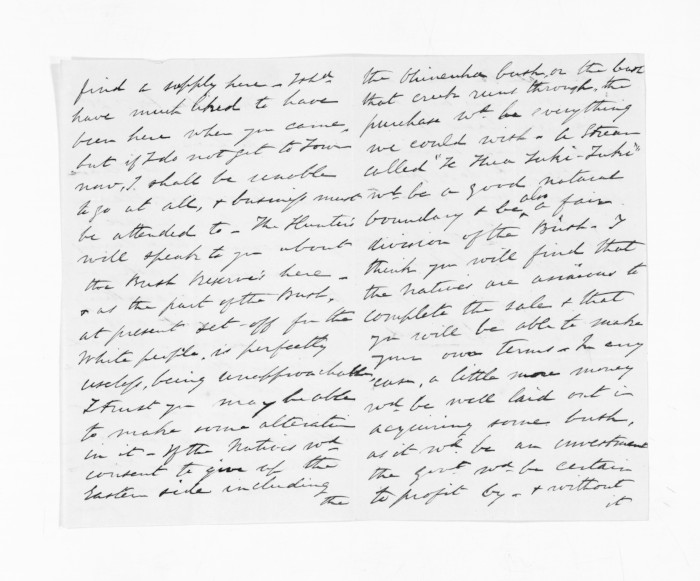 find a supply here – I shd
have much liked to have
been here when you came,
but if I do not get to Town
now, I shall be unable
to go at all, & business must
be attended to – The Hunters
will speak to you about
the Bush Reserves here –
& as the part of the Bush,
at present set-off for the
White people, is perfectly
useless, being unapproachable,
I trust you may be able
to make some alteration
in it – If the Natives wd
consent to give up the
Eastern side including
the
the bush, or the bush
that creek runs through, the
purchase wd be everything
we could wish – A Stream
called "Te Hua Tuki-Tuki"
wd be a good natural
boundary & be also a fair
division of the Bush – I
think you will find that
the Natives are anxious to
complete the sale & that
you will be able to make
your own terms – In any
case, a little more money
wd be well laid out in
acquiring some bush,
as it wd be an investment
the govt wd be certain
to profit by – & without
it